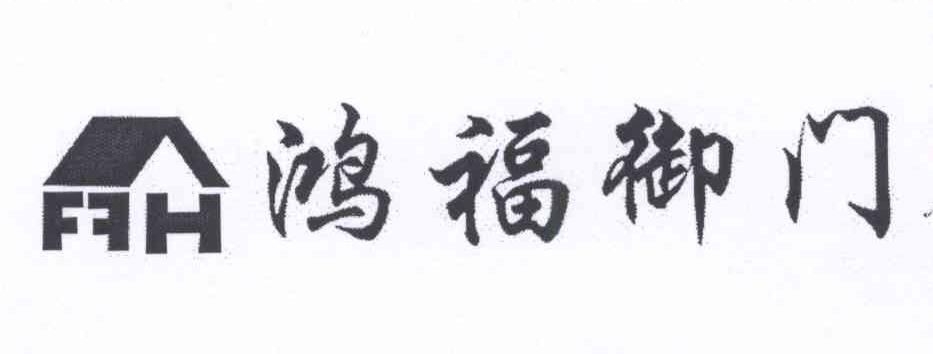 鸿福御门